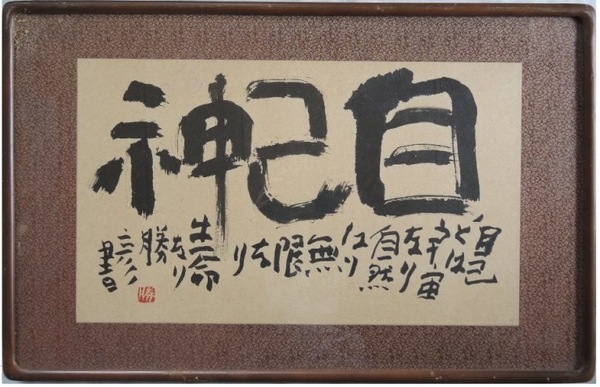 自己神
自己
とは
宇宙
なり
自然
なり
無
限
なり
生命
なり
勝
彦
書
勝